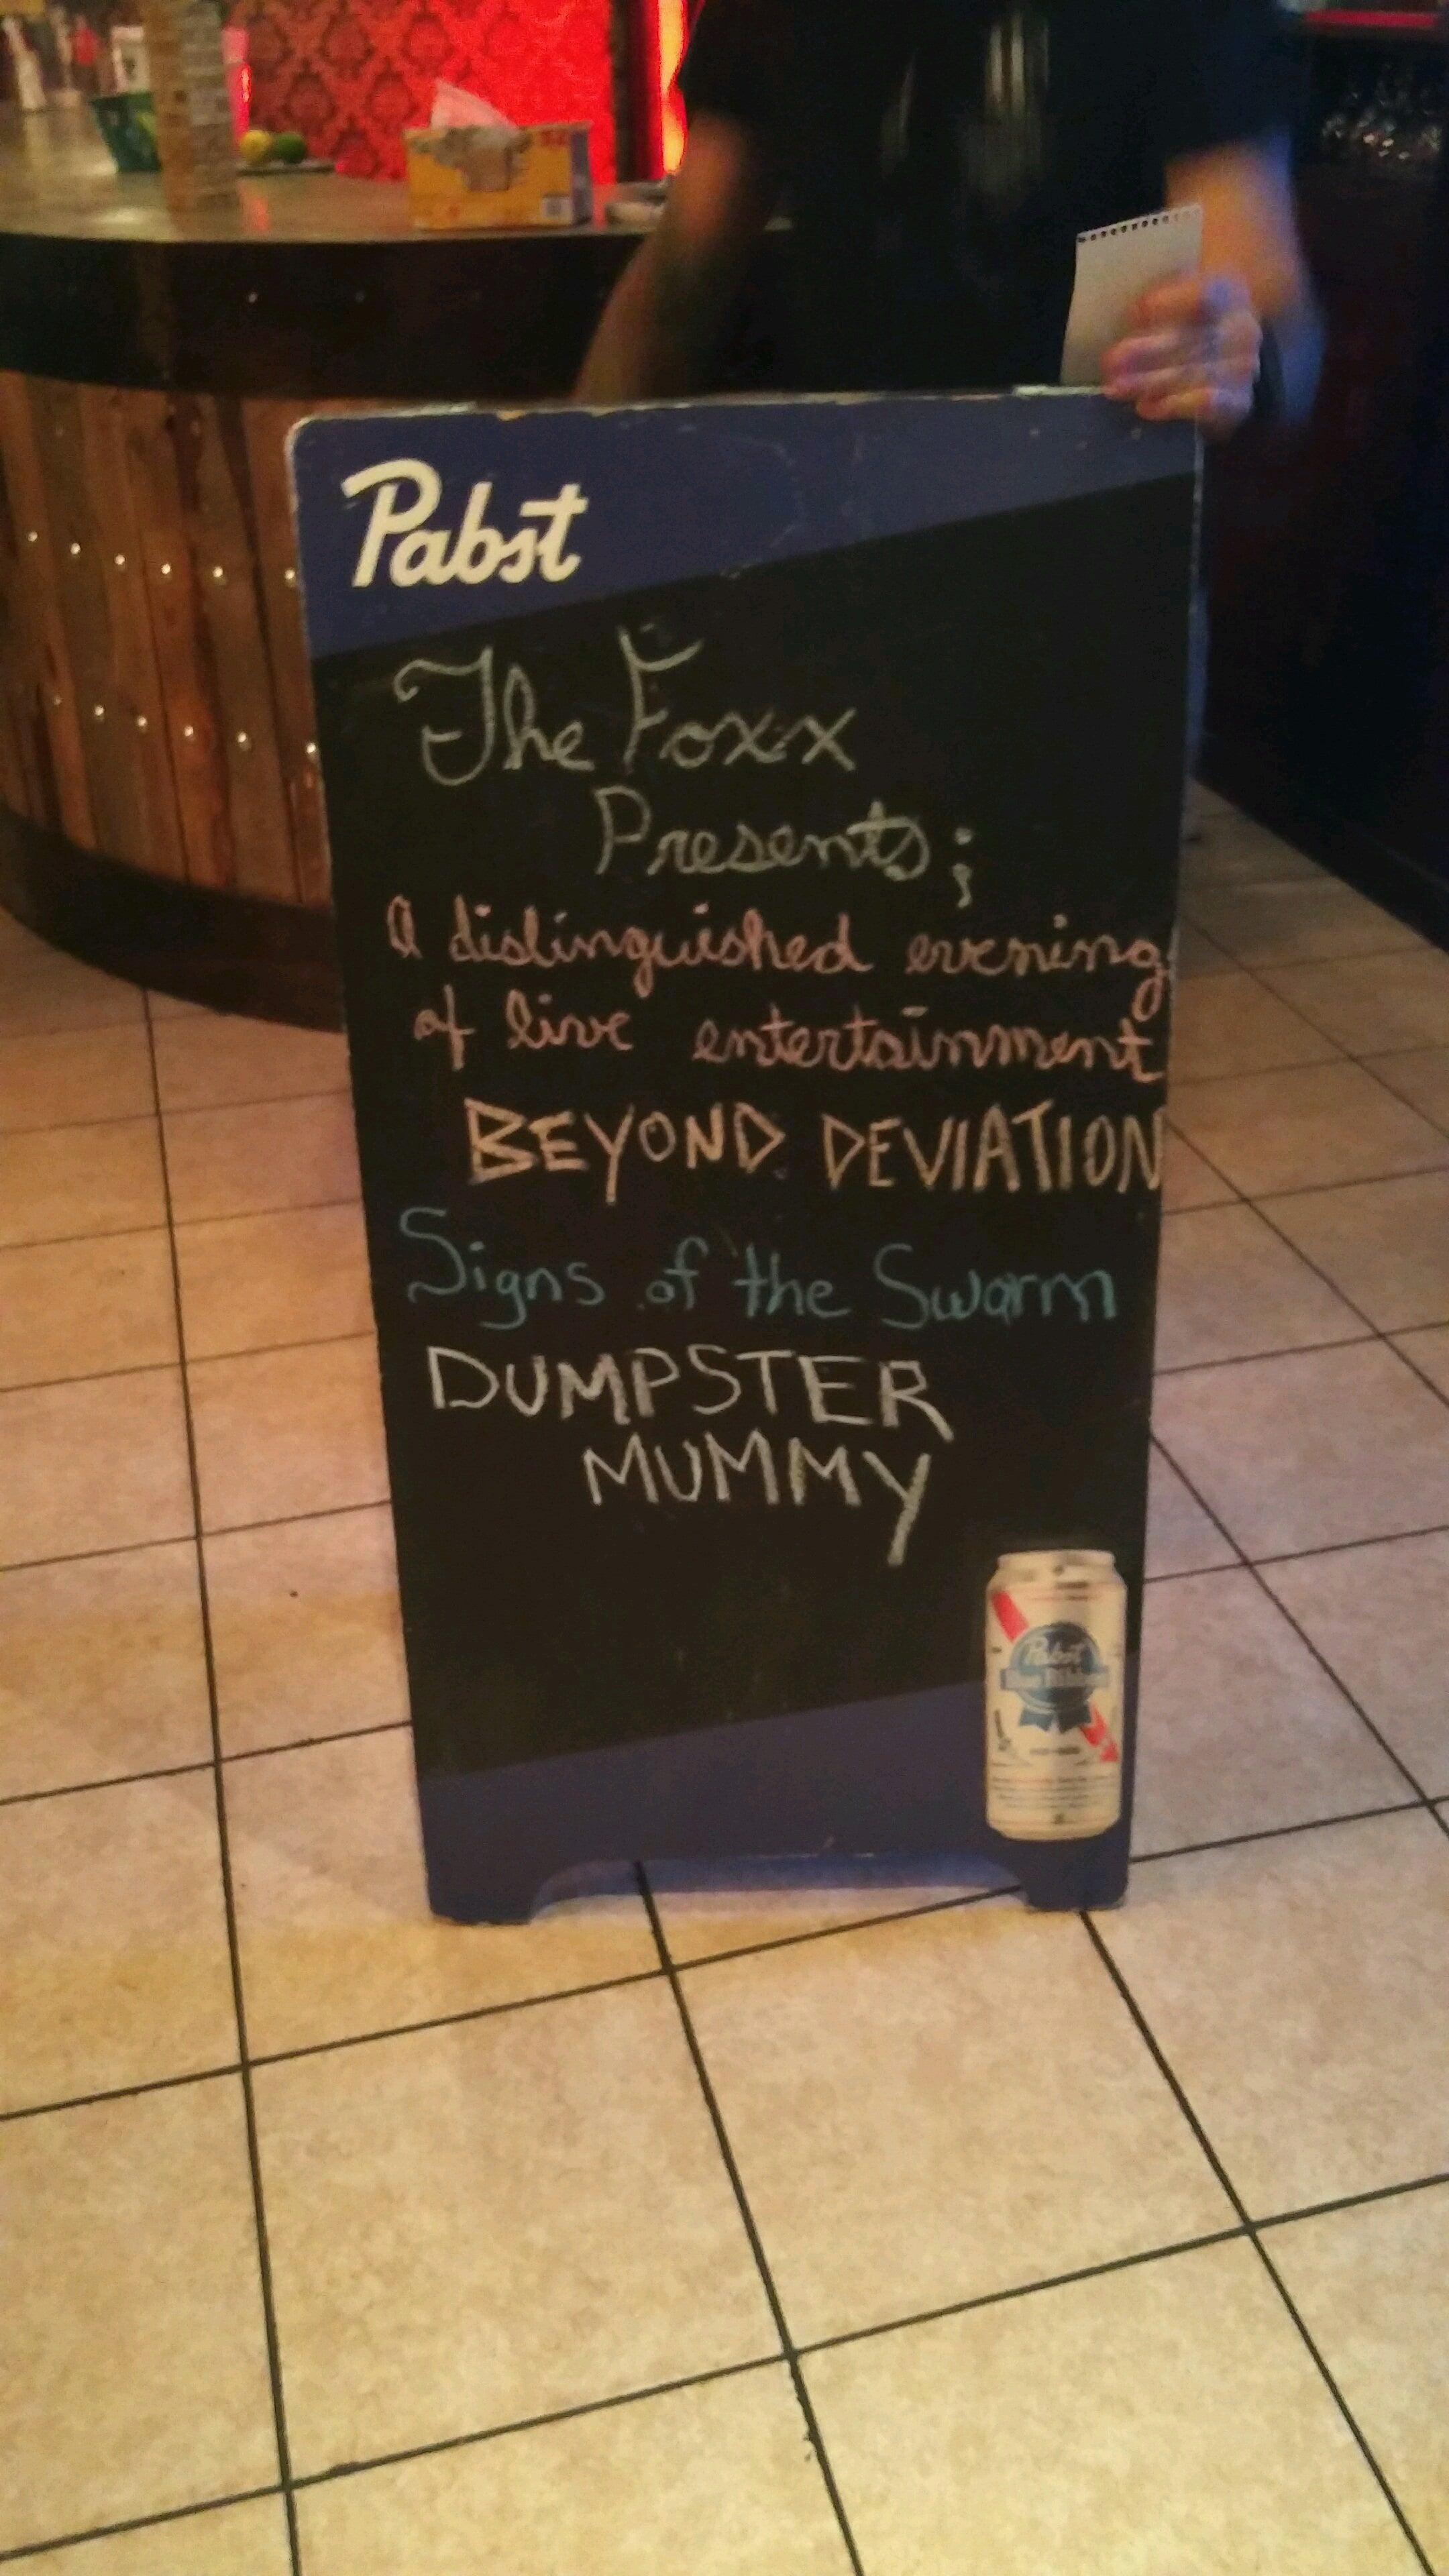 Pabst
The Foxx
Presents;
A distinguished evening
of live entertainment
BEYOND DEVIATION
Signs of the Swarm
DUMPSTER
MUMMY
Pabst
Blue Ribbon